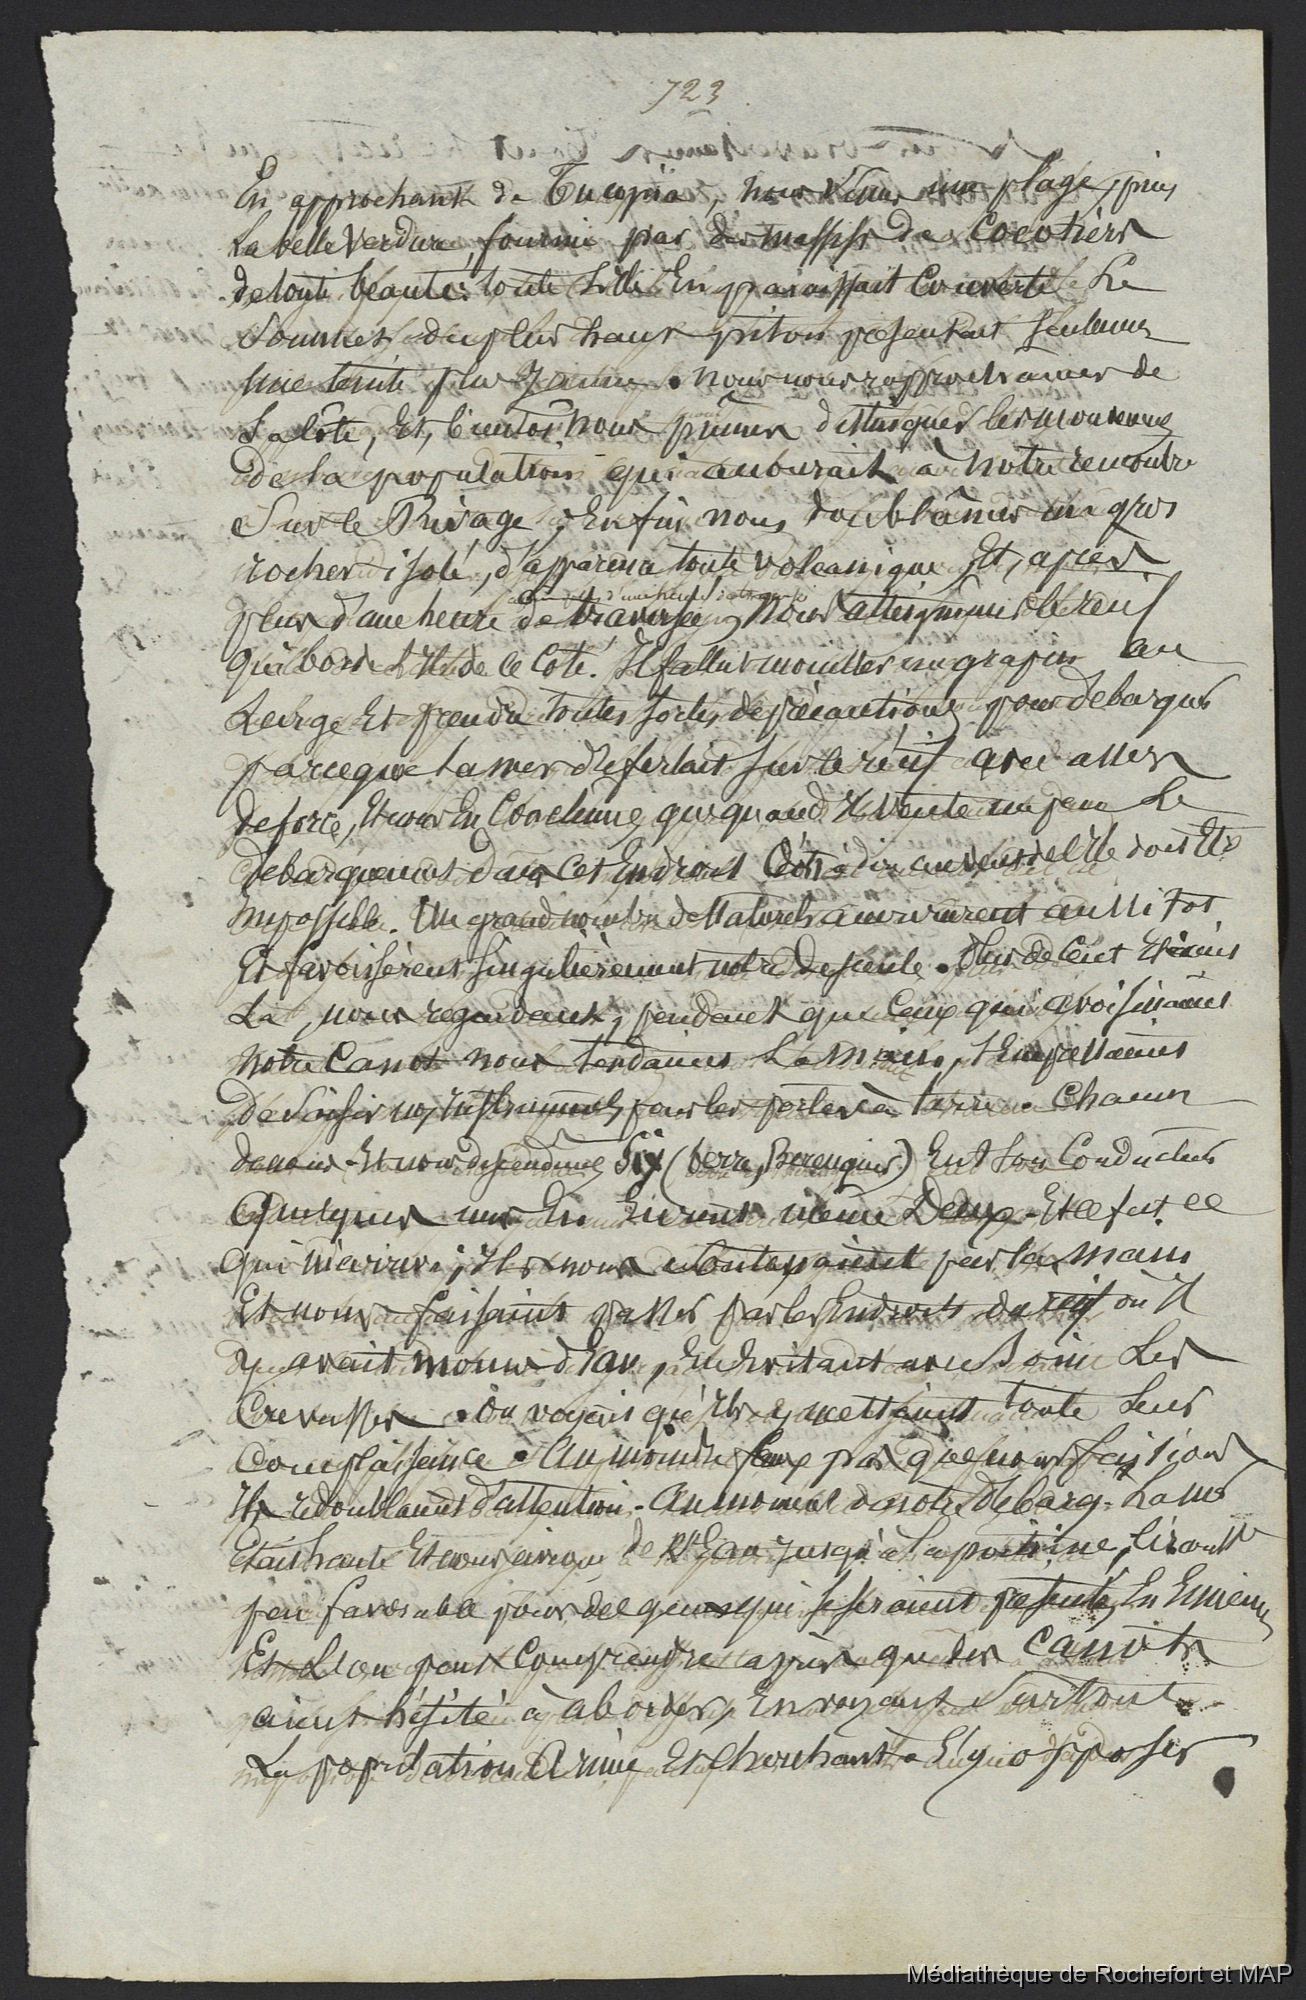 723
En approchant de Tucopia, nous vimes une plage, puis
la belle verdure, fournie par des massifs de Cocotiers
de toute beauté. toute l'ile En paraissait Couverte Le
Sommet du plus haut piton présentant seulement
une teinte plus Jaune. nous nous rapprochames de
La côte, Et, bientôt nous pûmes distinguer les mouvemens
de la population qui accourait à notre rencontre
Sur le Rivage, Enfin nous doublâmes un gros
rocher isolé, d'apparence toute volcanique Et, après
plus d'une heure de traversée, nous atteignimes le récif
qui borde L'Ile de ce Coté. Il fallut mouiller un grapin au
Large Et prendre toutes sortes de précautions pour debarquer
parceque la mer déferlait sur le récif avec assez
de force, Et nous En Conclumes que quand Il vente un peu Le
debarquement dans Cet Endroit C'est à dire au vent de l'Ile doit Etre
Impossible. Un grand nombre de Naturels arriverent aussitot
Et favorisèrent singulièrement notre descente. Plus de Cent Etaient
La, nous regardant, pendant que Ceux qui avoisinaient
notre Canot nous tendaient La main, s'Empressaient
De Saisir nos Instrumens pour les porter à terre. Chacun
de nous Et nous descendimes Six (Serres, Berenguier) Eut son Conducteur
Quelques uns En Eurent même Deux Et ce fut ce
qui m'arriva; Ils nous par la main
Et nous faisaient passer par les Endroits du récif où Il
y avait moins d'Eau, En Evitant avec soin Les
Crevasses. On voyait qu'Ils y mettaient toute leur
Complaisance. Au moindre faux pas que nous faisions
Ils redoublaient d'attention. Au moment de notre debarq. La mer
Etait haute Et nous avions de l'Eau jusqu'à la poitrine, Circonst
peu favorable pour des gens qui se seraient présentés En Ennemis
Et L'on peut Comprendre après que des Canots
aient hésité à aborder, En voyant Surtout
La population Armée Et Cherchant à s'y opposer
Médiathèque de Rochefort et MAP